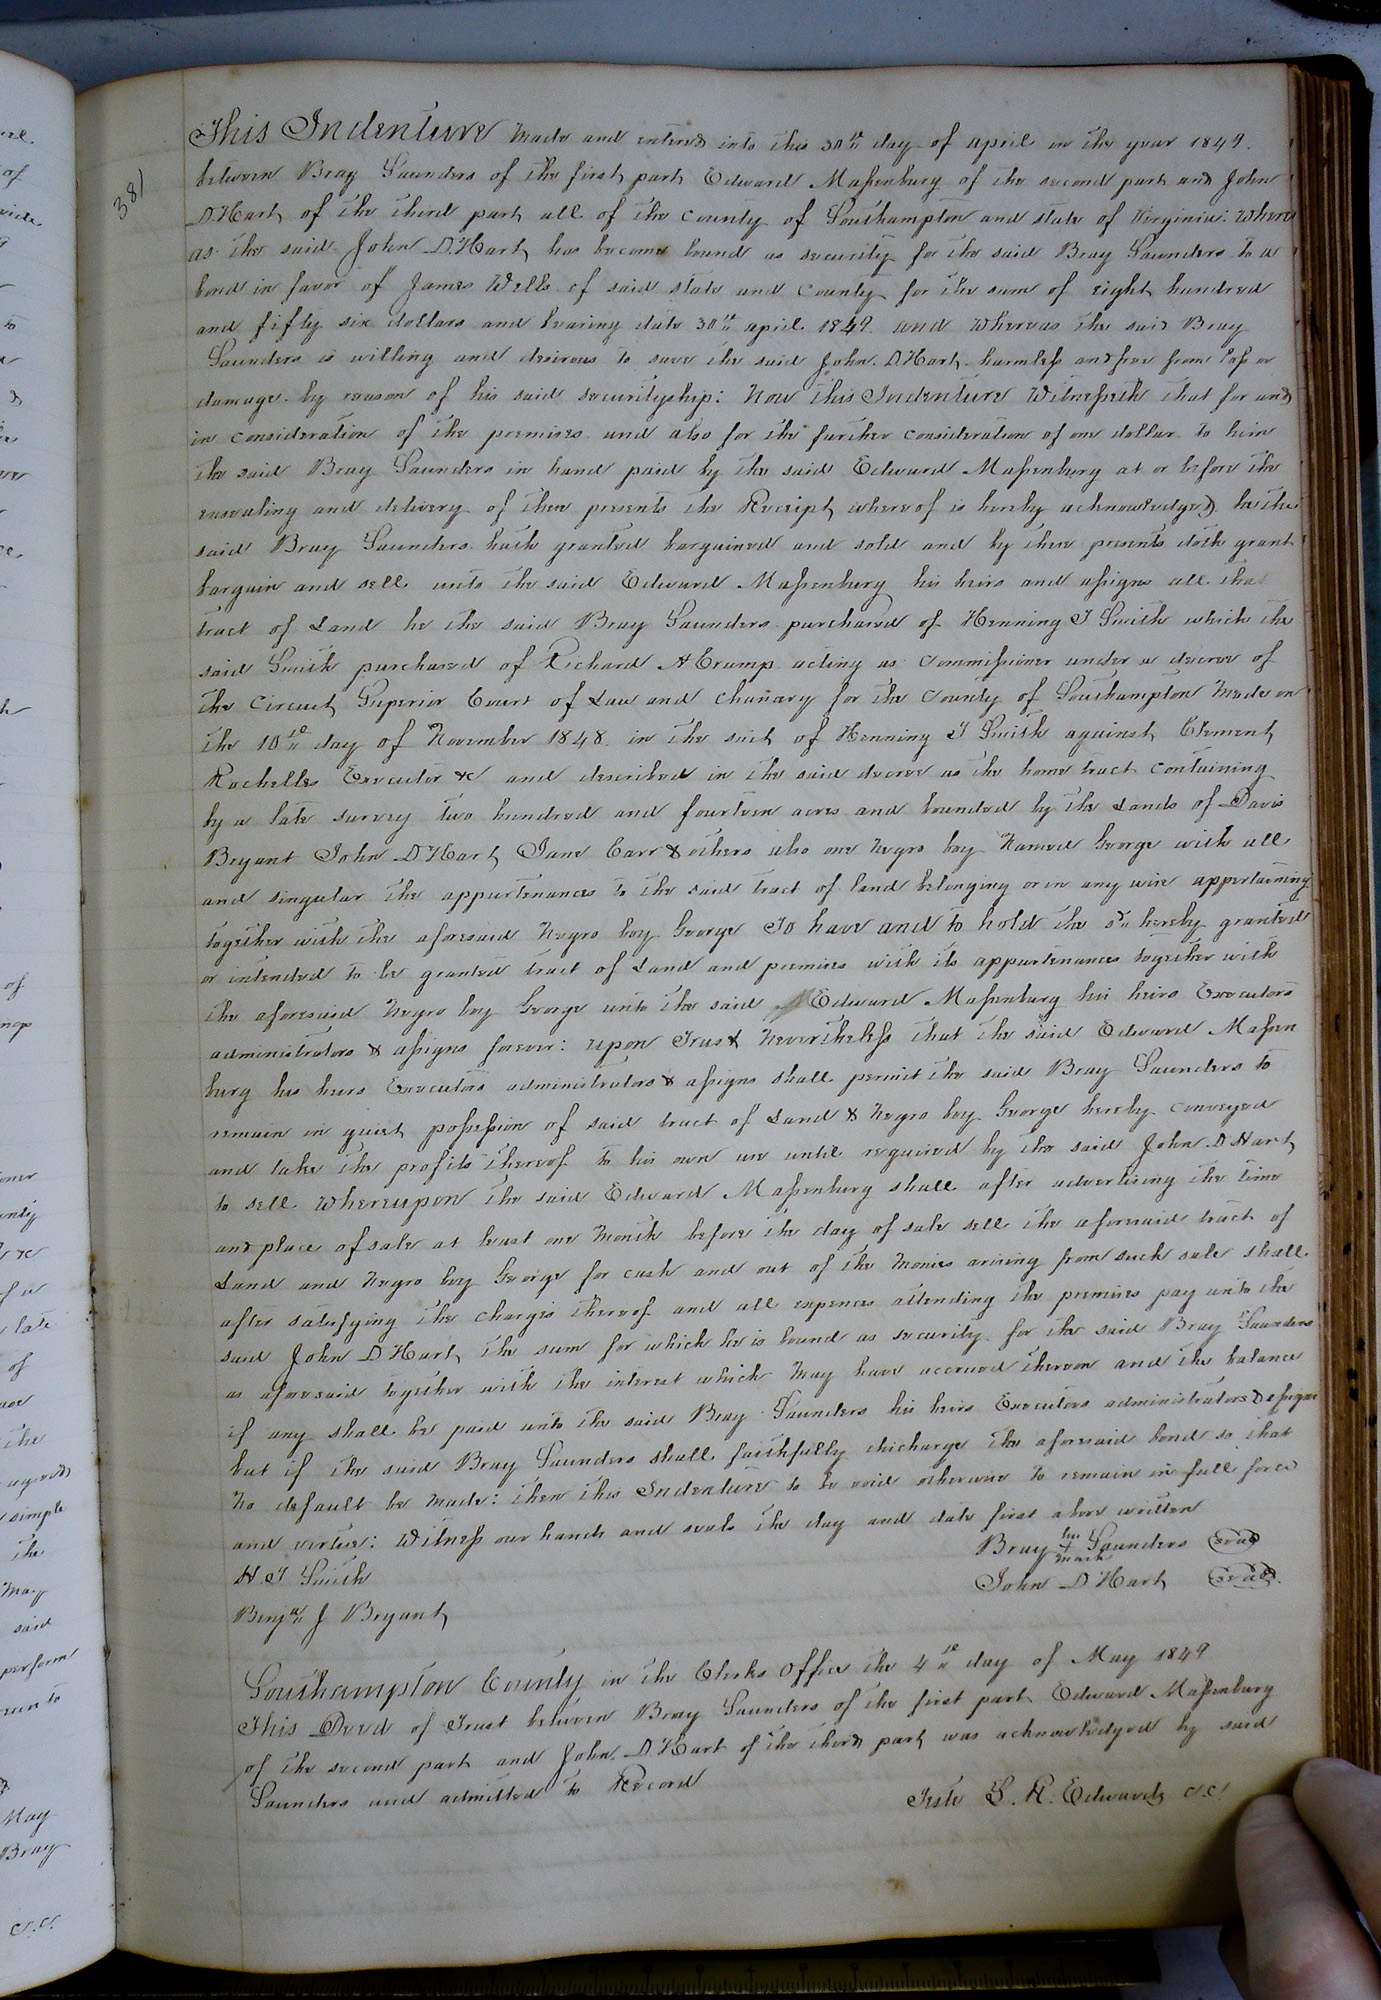 381
This Indenture made and entered into this 30th day of april in the year 1849.
between Bray Saunders of the first part Edward Massenburg of the second part and John
D. Hart of the third part all of the county of Southampton and state of Virginia: Where
as the said John D. Hart has become bound as security for the said Bray Saunders to a
bond in favor of James Wells of said state and county for the sum of eight hundred
and fifty six dollars and bearing date 30th april 1849 and whereas the said Bray
Saunders is willing and desirous to save the said John D. Hart harmless and free from loss or
damage by reason of his said securityship: Now this Indenture Witnesseth that for and
in consideration of the premises and also for the further consideration of one dollar to him
the said Bray Saunders in hand paid by the said Edward Massenburg at or before the
ensealing and delivery of these presents the Receipt whereof is hereby acknowledged he the
said Bray Saunders hath granted bargained and sold and by these presents doth grant
bargain and sell unto the said Edward Massenburg his heirs and assigns all that
tract of Land he the said Bray Saunders purchased of Henning T Smith which the
said Smith purchased of Richard H Crump acting as Commissioner under a decree of
the Circuit Superior Court of Law and Chancery for the County of Southampton made on
the 10th day of November 1848 in the suit of Henning T Smith against Clement
Rochelles Executor &c and described in the said decree as the home tract containing
by a late survey two hundred and fourteen acres and bounded by the Lands of Davis
Bryant John D Hart Jane Carr & others also one Negro boy Named George with all
and singular the appurtenances to the said tract of land belonging or in any wise appertaining
together with the aforesaid Negro boy George To have and to hold the sd hereby granted
or intended to be granted tract of Land and premises with its appurtenances together with
the aforesaid Negro boy George unto the said Edward Massenburg his heirs Executors
administrators & assigns forever: upon Trust Nevertheless that the said Edward Massen
burg his heirs Executors administrators & assigns shall permit the said Bray Saunders to
remain in quiet possession of said tract of Land & Negro boy George hereby conveyed
and take the profits thereof to his own use until required by the said John D Hart
to sell whereupon the said Edward Massenburg shall after advertising the time
and place of sale at least one Month before the day of sale sell the aforesaid tract of
Land and Negro boy George for cash and out of the Monies arising from such sale shall
after satisfying the charges thereof and all expences attending the premises pay unto the
said John D Hart the sum for which he is bound as security for the said Bray Saunders
as aforesaid together with the interest which may have accrued thereon and the balance
if any shall be paid unto the said Bray Saunders his heirs Executors administrators & assigns
but if the said Bray Saunders shall faithfully discharge the aforesaid bond so that
No default be made: then this Indenture to be void otherwise to remain in full force
and virtue: Witness our hands and seals the day and date first above written
Bray his + mark Saunders seal
H. T Smith
John D Hart seal
Benjn J Bryant
Southampton County in the Clerks Office the 4th day of May 1849
This Deed of Trust between Bray Saunders of the first part Edward Massenburg
of the second part and John D. Hart of the third part was acknowledged by said
Saunders and admitted to Record
Teste L. R. Edwards C.C.